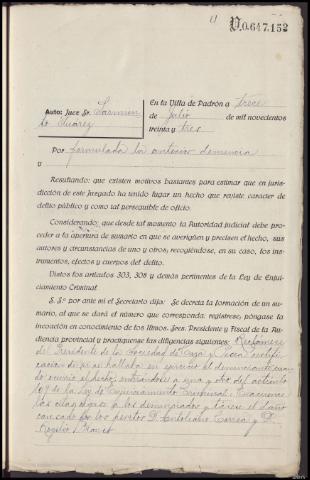 O.647.152
En la Villa de Padrón a trece
Auto: Juez Sr. Sarmien
to Suárez
de Julio de mil novecientos
treinta y tres
Por formulada la anterior denuncia
y
Resultando: que existen motivos bastantes para estimar que en juris-
dicción de este Juzgado ha tenido lugar un hecho que reviste carácter de
delito público y como tal perseguible de oficio.
Considerando: que desde tal momento la Autoridad judicial debe pro-
ceder a la apertura de sumario en que se averigüen y precisen el hecho, sus
autores y circunstancias de uno y otros; recogiéndose, en su caso, los ins-
trumentos, efectos y cuerpos del delito.
Vistos los artículos 303, 308 y demás pertinentes de la Ley de Enjui-
ciamiento Criminal.
S. Sª por ante mí el Secretario dijo: Se decreta la formación de un su-
mario, al que se dará el número que corresponda; regístrese; póngase la
incoación en conocimiento de los Iltmos. Sres. Presidente y Fiscal de la Au-
diencia provincial y practíquense las diligencias siguientes:
del Presidente de la Sociedad de Caza y Pesca certifi-
cación de si se hallaba en ejercicio el denunciante cuan-
do ocurrió el hecho, del artículo
109 de la Ley de Enjuiciamiento Criminal.
a los denunciados y tásese el daño
causado por los peritos D. y D.
Rogelio